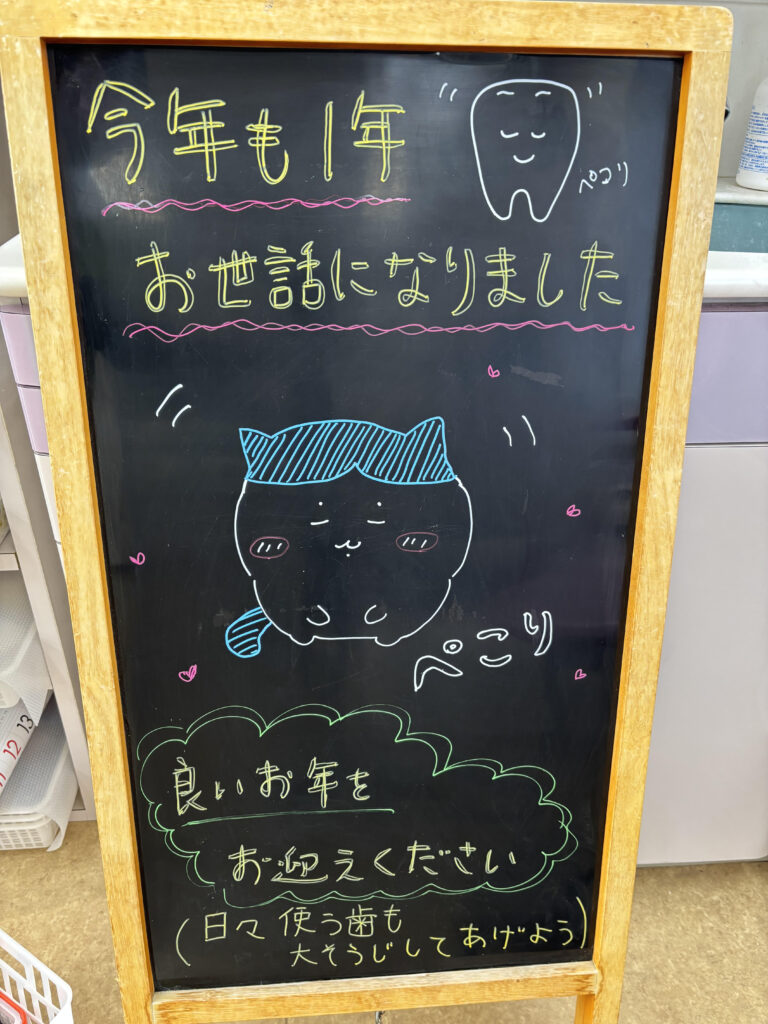 今年も1年
ぺコリ
お世話になりました
ぺこり
良いお年を
お迎えください
(日々使う歯も
大そうじしてあげよう)
12
13